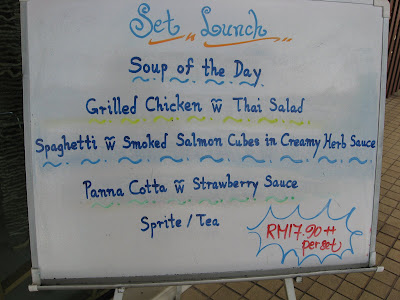 Set Lunch
Soup of the Day
Grilled Chicken w̃ Thai Salad
Spaghetti w̃ Smoked Salmon Cubes in Creamy Herb Sauce
Panna Cotta w̃ Strawberry Sauce
Sprite / Tea
RM17.90++
per set